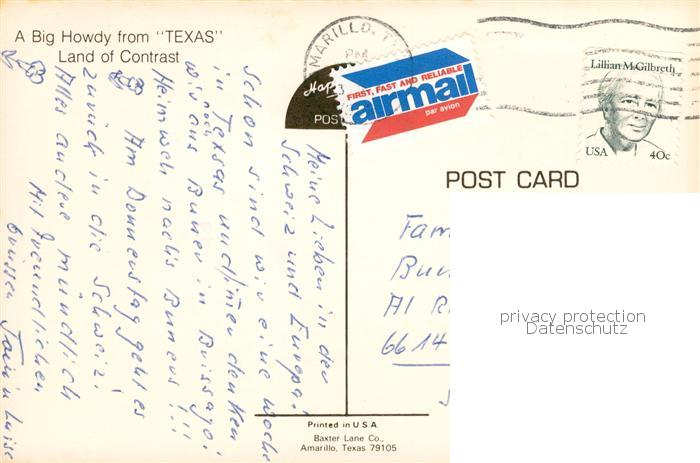 A Big Howdy from "TEXAS"
Land of Contrast
MARILLO, T
PM
FIRST, FAST AND RELIABLE
airmail
par avion
Lillian M. Gilbreth
USA 40c
POST CARD
Meine Lieben in der
Schweiz und Europa!
Schon sind wir eine Woche
in Texas und immer denken
wir noch ans Buner in Brissago!
Heimweh nach
Am Donnerstag geht es
zurück in die Schweiz!
Alles andere mündlich
Mit freundlichen
Grüssen
Luise
Fam
Bu
Al R
6614
privacy protection
Datenschutz
Printed in U.S.A.
Baxter Lane Co.,
Amarillo, Texas 79105